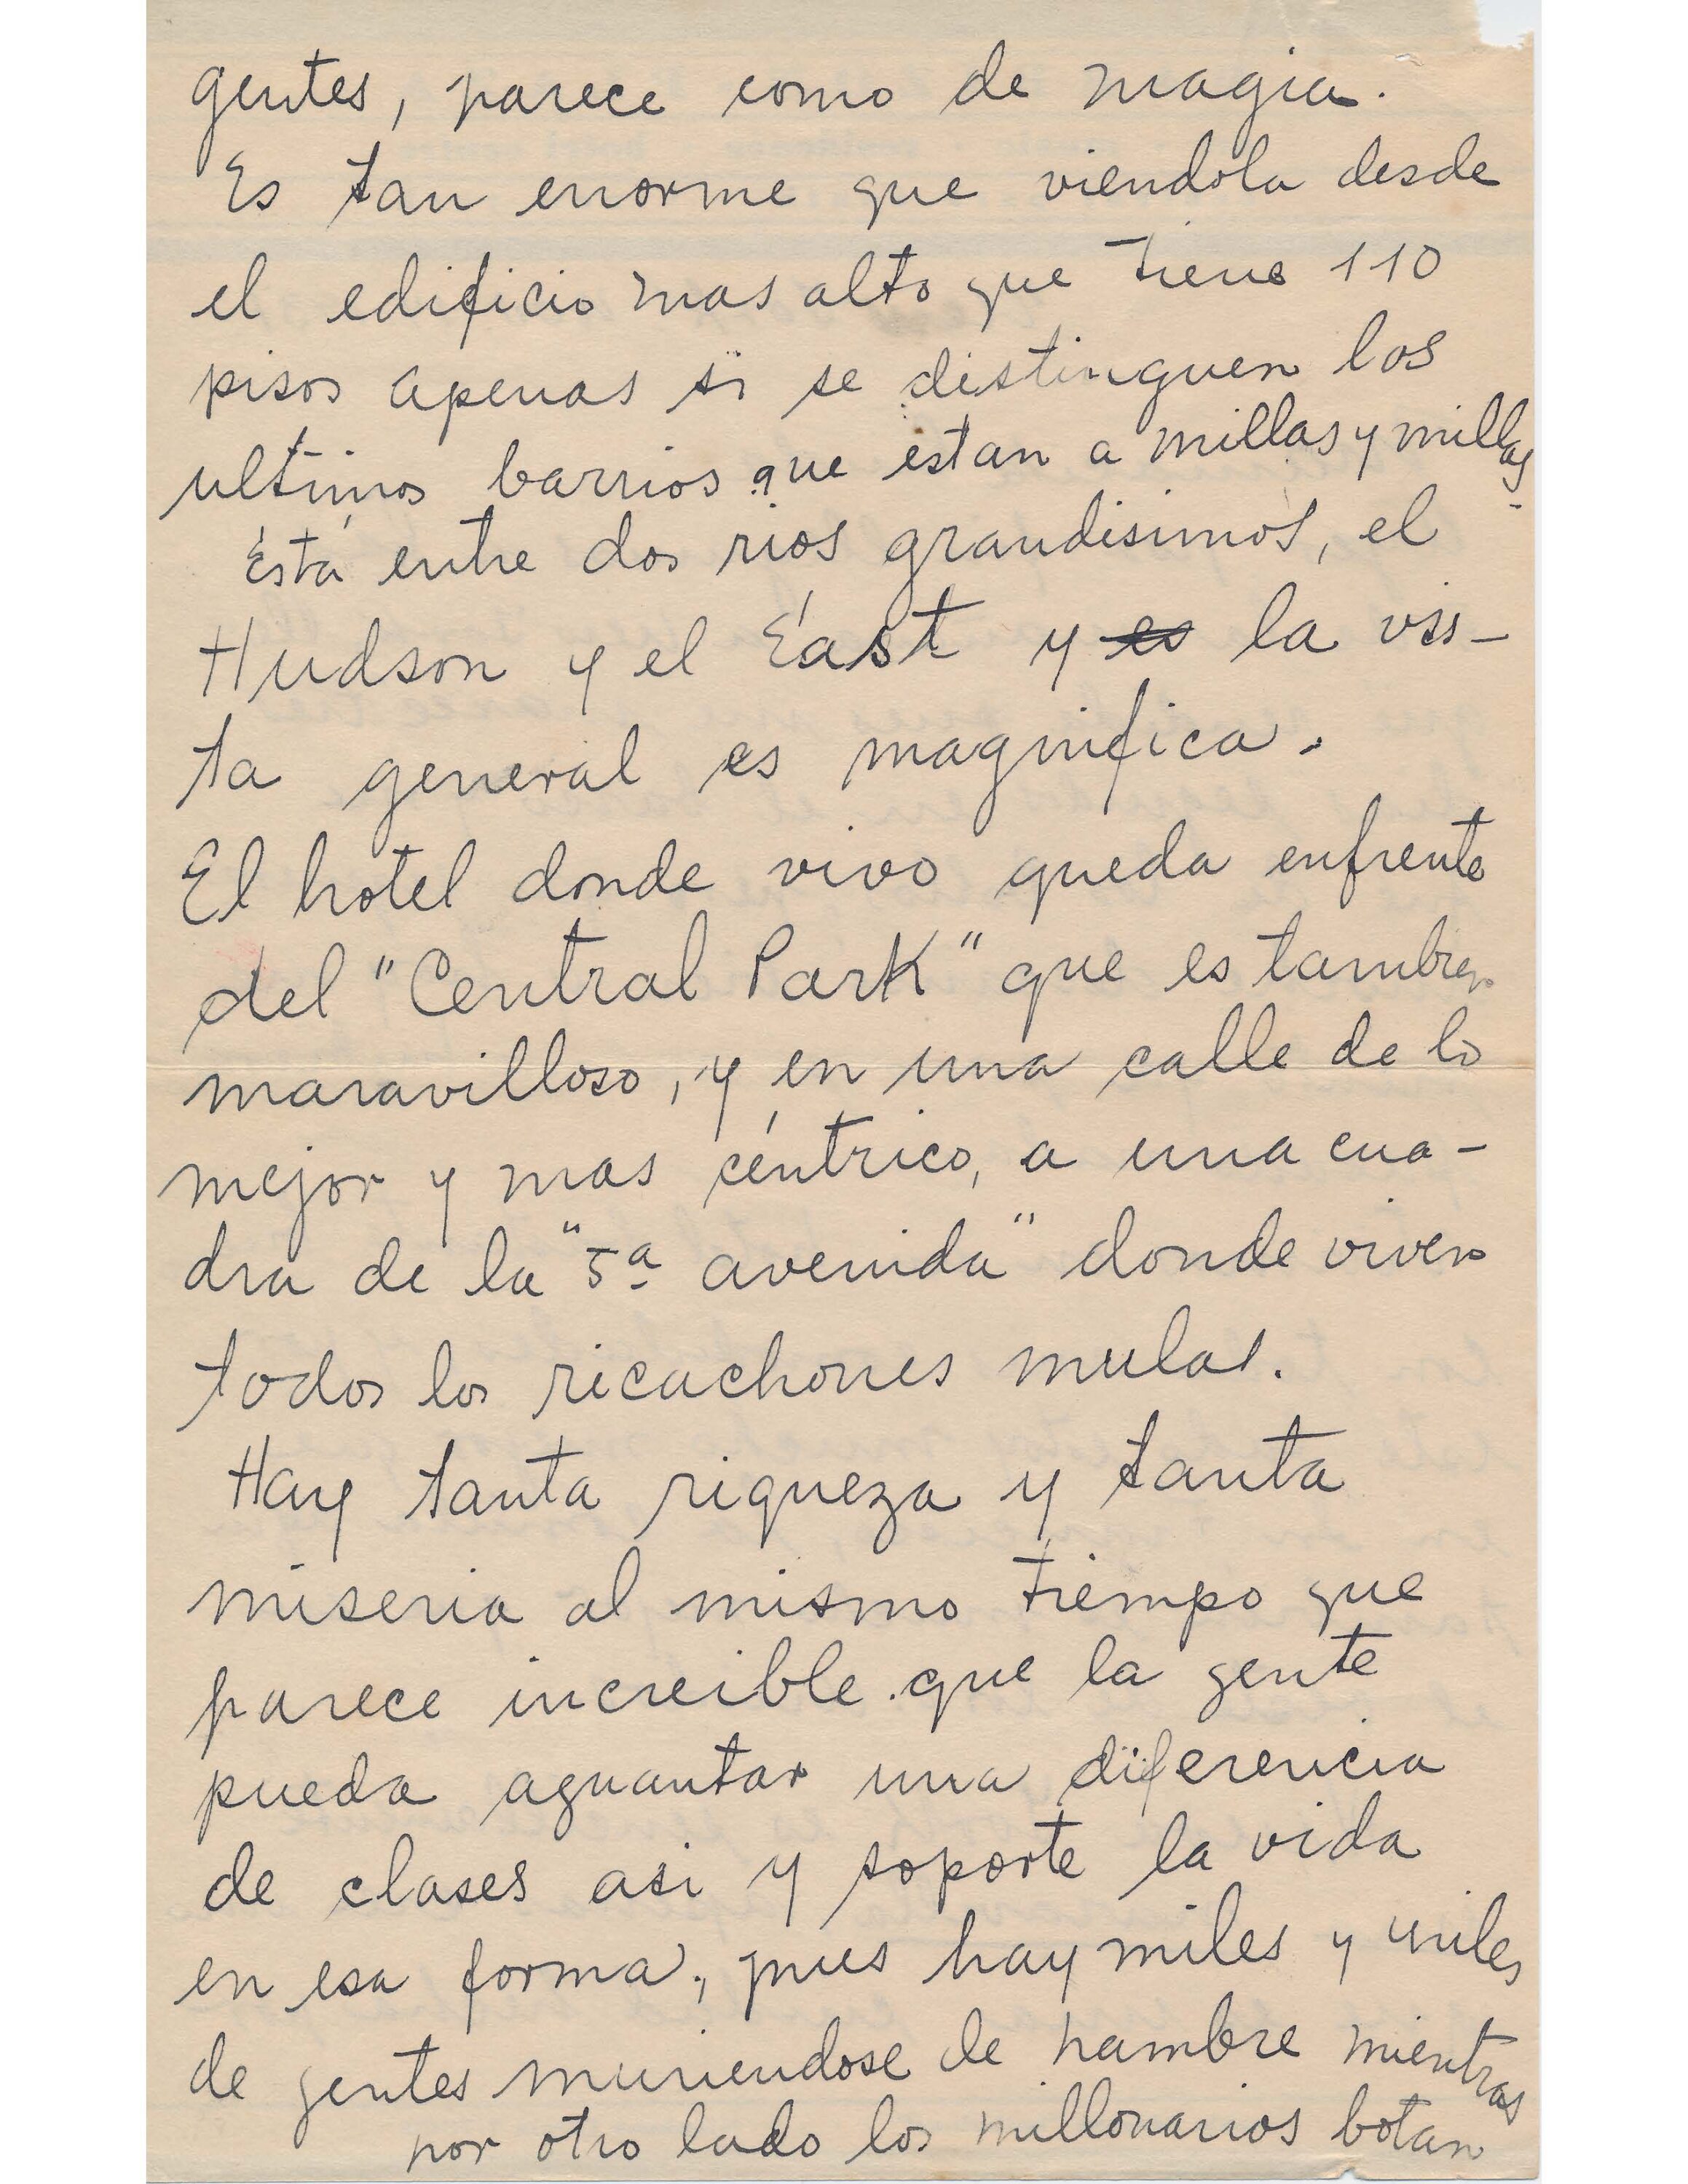 gentes, parece como de magia.
Es tan enorme que viendola desde
el edificio mas alto que tiene 110
pisos apenas si se distinguen los
ultimos barrios que estan a millas y millas.
Está entre dos rios grandisimos, el
Hudson y el East y es la vis-
ta general es magnifica.
El hotel donde vivo queda enfrente
del "Central Park" que es tambien
maravilloso, y en una calle de lo
mejor y mas céntrico, a una cua-
dra de la "5ª avenida" donde viven
todos los ricachones mulas.
Hay tanta riqueza y tanta
miseria al mismo tiempo que
parece increible que la gente
pueda aguantar una diferencia
de clases asi y soporte la vida
en esa forma, pues hay miles y miles
de gentes muriendose de hambre mientras
por otro lado los millonarios botan